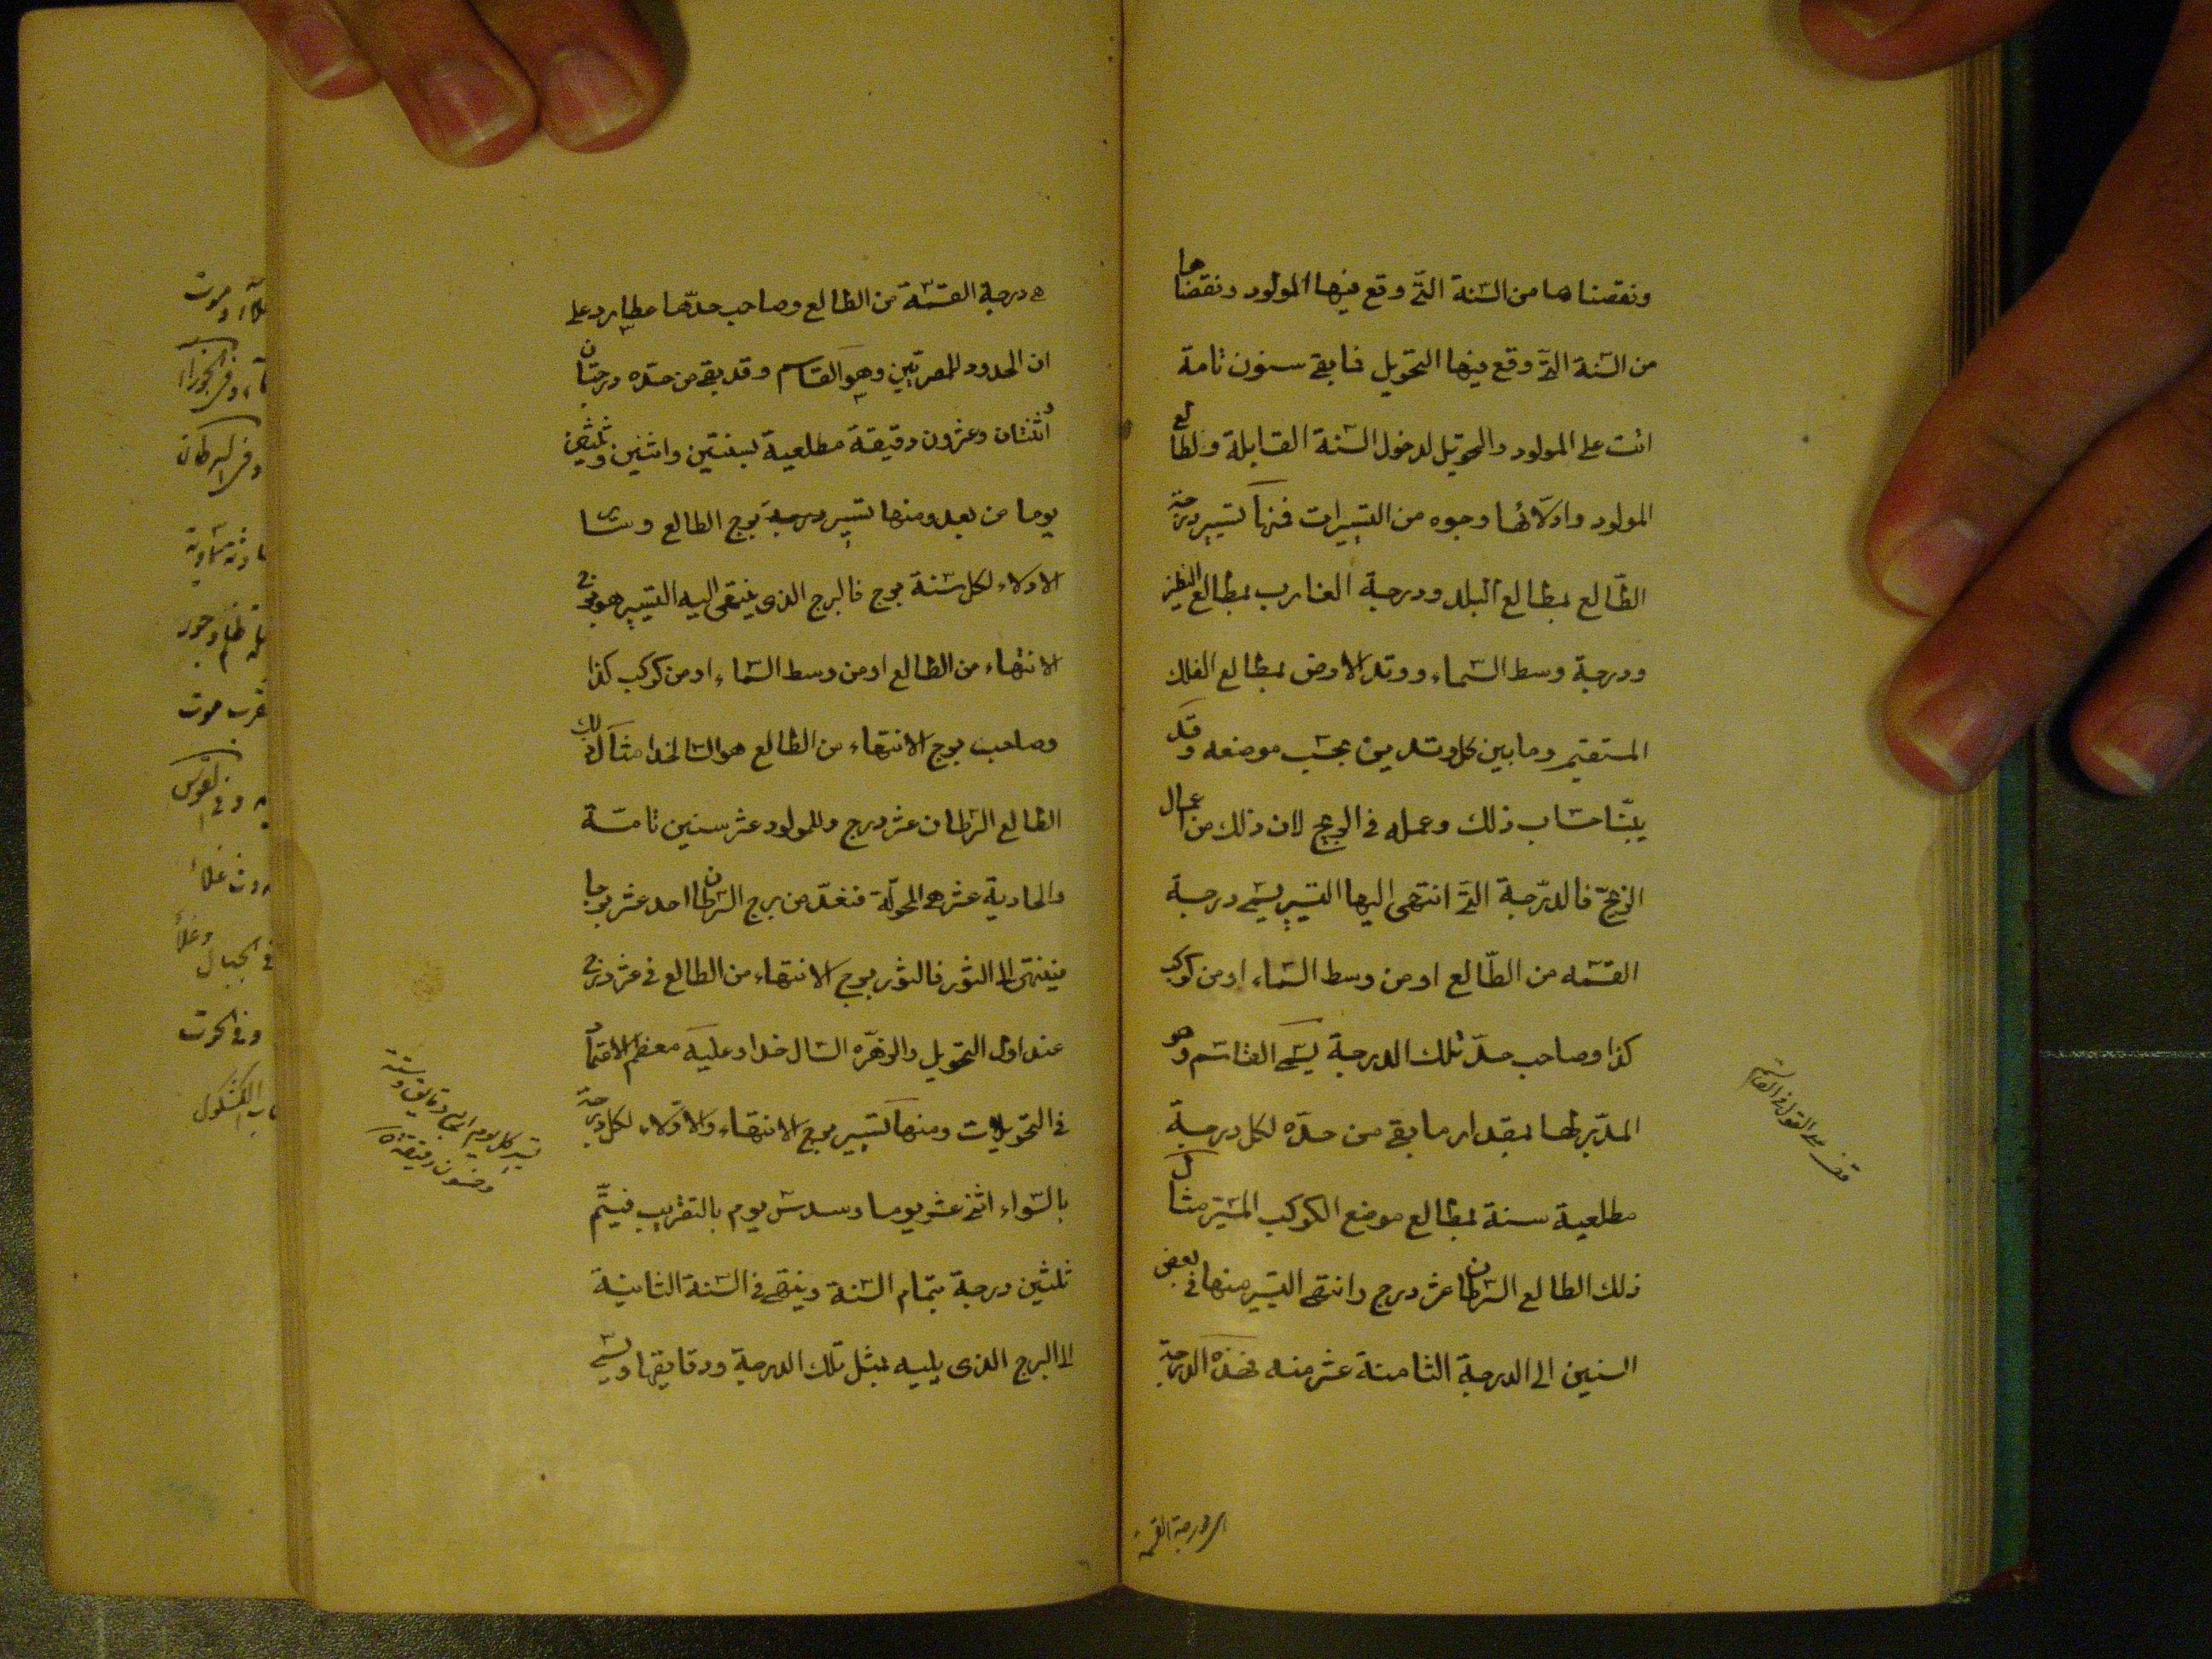 ونقصناها من السّنة التّى وقع فيها المولود ونقصناها
من السّنة التّى وقع فيها التحويل فما بقى سنون تامة
اتت على المولود والتحويل لدخول السّنة القابلة ولطالع
المولود وادلّائها وجوه من التسييرات فمنها تسيير درجة
الطّالع بمطالع البلد ودرجة الغارب بمطالع النظير
ودرجة وسط السّماء ووتد الارض بمطالع الفلك
المستقيم وما بين كل وتدين بحسب موضعه وقد
بيّنا حساب ذلك وعمله فى الزيج لان ذلك من اعمال
الزيج فالدرّجة التّى انتهى اليها التسيير يسمّى درجة
القسمه من الطّالع او من وسط السّماء او من كوكب
كذا وصاحب حدّ تلك الدرجة يسمّى القاسم وهو
المدّبر لها بمقدار ما بقى من حدّه لكل درجة
مطلعية سنة بمطالع موضع الكوكب المسيّر مثال
ذلك الطالع السّرطان عشر درج وانتهى التسيير منها فى بعض
السنين الى الدرجة الثامنة عشر منه فهذه الدرجة
هى درجة القسمة من الطالع وصاحب حدّها عطارد على
ان الحدود للمصريين وهو القاسم وقد بقى من حدّه درجتان
اثنتان وعشرون دقيقة مطلعية لسنتين واثنين وثلثين
يوما من بعد ومنها تسيير درجة برج الطالع وسائر
الادلاء لكل سّنة برج فالبرج الذى ينتهى اليه التسيير هو برج
الانتهاء من الطالع او من وسط السّماء او من كوكب كذا
وصاحب برج الانتهاء من الطالع هو السّالخدا مثال ذلك
الطالع السّرطان عشر درج وللمولود عشر سنين تامّة
والحادية عشر هى المحوّلة فنعدّ من برج السّرطان احد عشر برجا
فينتهى الى الثور فالثور برج الانتهاء من الطالع فى عشر درج
عند اول التحويل والزهرّه السّالخدا وعليه معظم الاعتماد
فى التحويلات ومنها تسيير برج الانتهاء والادّلاء لكل درجة
بالسّواء اثنى عشر يوما وسدس يوم بالتقريب فيتمّ
ثلثين درجة بتمام السّنة وينتهى فى السّنة الثانية
الى البرج الذى يليه بمثل تلك الدرجة ودقايقها ويسمّى